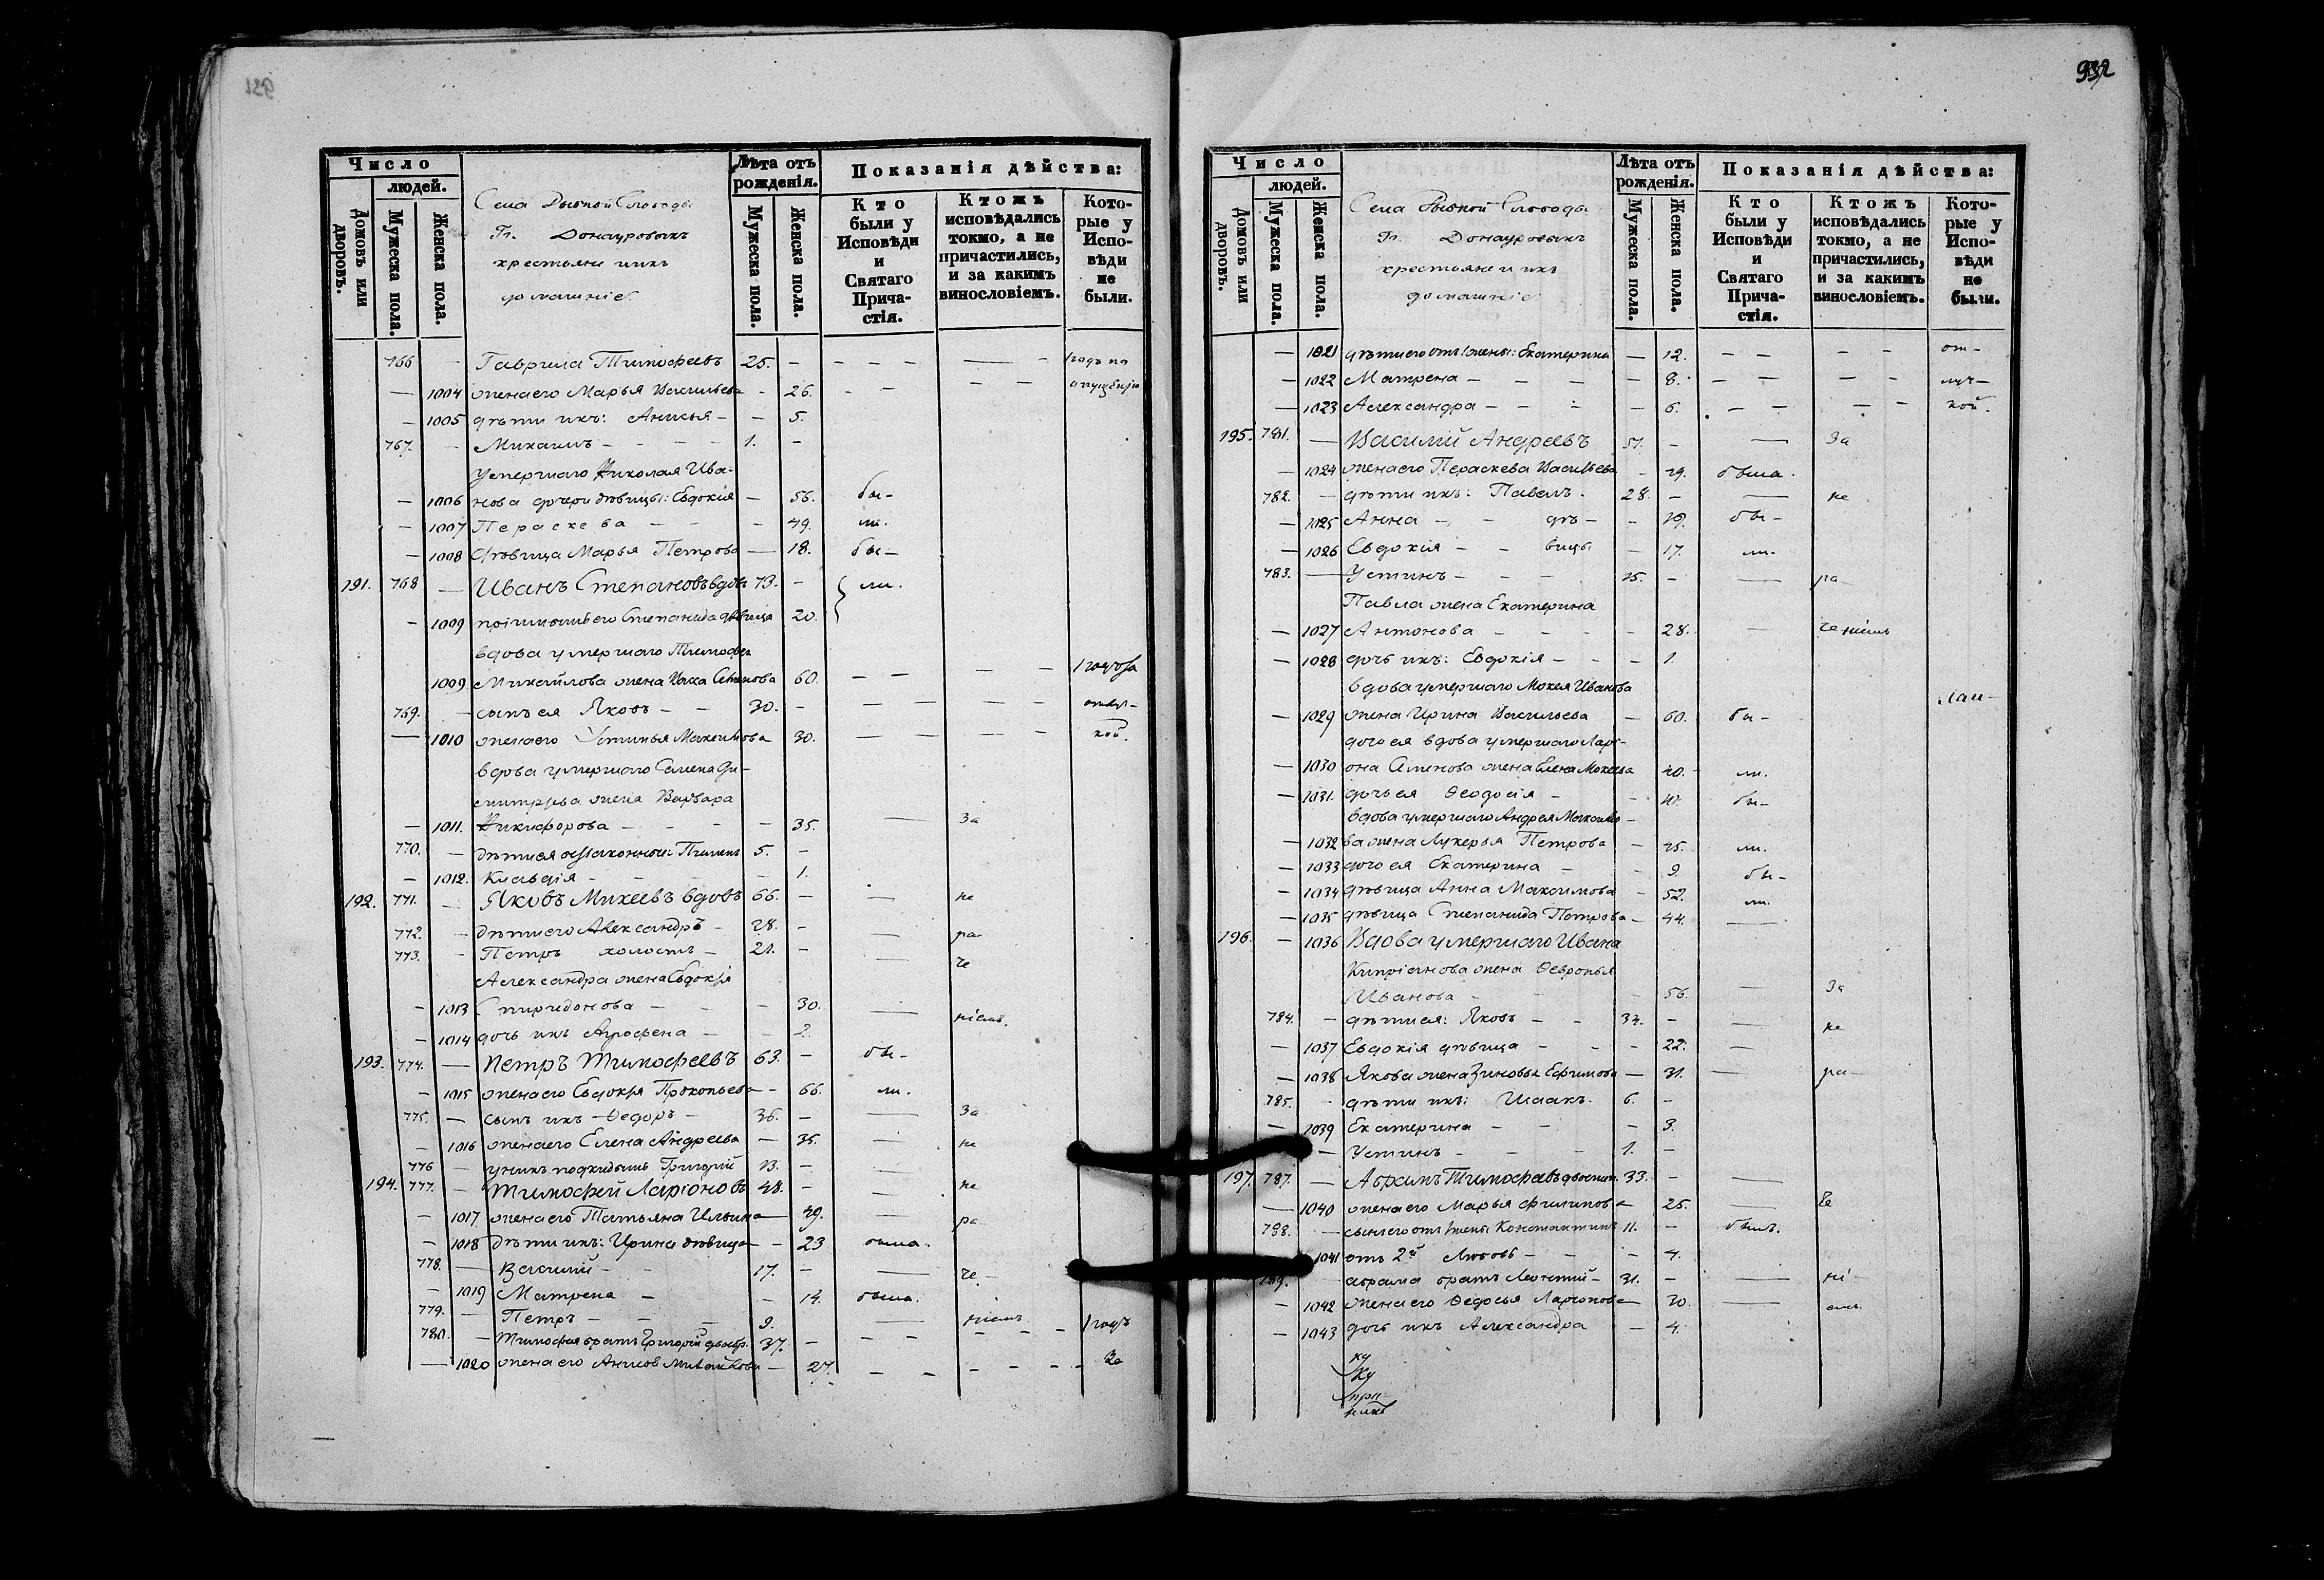 931
Число
людей.
Домовъ или дворовъ.
Мужеска пола.
Женска пола.
Села Рыбной Слободы
Гг. Донауровыхъ
крестьяне и ихъ
домашніе.
Лѣта отъ рожденія.
Мужеска пола.
Женска пола.
Показанія дѣйства:
Кто были у Исповѣди и Святаго Прича-стія.
Ктожъ исповѣдались токмо, а не причастились, и за какимъ винословіемъ.
Кото-рые у Испо-вѣди не были.
766 — Гаврила Тимофеевъ 25. — — — — — —
— 1004 жена его Марья Васильева — 26. — — — —
— 1005 дѣти ихъ: Анисья — — 5.
767. — Михаилъ — — — — 1. —
умершаго Николая Ива-
— 1006 нова дочери дѣвицы: Евдокія — 56. бы-
— 1007 Пераскева — — — 49. ли.
— 1008 дѣвица Марья Петрова — 18. бы-
191. 768 — Иванъ Степановъ вдовъ 73. — ли.
— 1009 Степанида дѣвица 20.
вдова умершаго Тимофея
1009 Михайлова жена Семенова 60. — — — —
769. — сынъ ея Яковъ — — 30. — — — — —
— 1010 жена его Устинья Максимова 30. — — — — кой.
вдова умершаго Семена Ди-
митріева жена Варвара
— 1011. Никифорова — — — — 35. — За
770. — дѣти ея незаконнои: Пименъ 5. —
— 1012. Клавдія — — — — 1.
192. 771. — Яковъ Михеевъ вдовъ 66. — — не
772. — дѣти его Александръ — 28. — — ра-
773. — Петръ холостъ — 21. — — че
Александра жена Евдокія
— 1013 Спиридонова — — — 30. — ніемъ.
— 1014 дочь ихъ Агрофена — — 2.
193. 774. — Петръ Тимофеевъ 63. — бы-
— 1015 жена его Евдокія Прокопьева — 66. ли.
775. — сынъ ихъ Ѳедоръ — 36. — — За
— 1016 жена его Елена Андреева — 35. — не
776 — Григорій 13. — —
194. 777. — Тимофей Ларіоновъ 48. — — не
— 1017 жена его Татьяна Ильина — 49. — ра-
— 1018 дѣти ихъ: Ирина дѣвица — 23 была.
778. — Василій — — 17. — — че-
— 1019 Матрена — — 14. была.
779. — Петръ — — — 9. — ніемъ
780. — Тимофея братъ Григорій 37. — — — — — — 1 годъ
— 1020 жена его Михайлова — 27. — — — — — За
932
Число
людей.
Домовъ или дворовъ.
Мужеска пола.
Женска пола.
Села Рыбной Слободы
Гг. Донауровыхъ
крестьяне и ихъ
домашніе.
Лѣта отъ рожденія.
Мужеска пола.
Женска пола.
Показанія дѣйства:
Кто были у Исповѣди и Святаго Прича-стія.
Ктожъ исповѣдались токмо, а не причастились, и за какимъ винословіемъ.
Кото-рые у Испо-вѣди не были.
— 1021 дѣти его отъ 1 жены: Екатерина — 12. — — — — от-
— 1022 Матрена — — — — 8. — — — — луч-
— 1023 Александра — — — 6. — — — — кой.
195. 781. — Василій Андреевъ 51. — — За
— 1024 жена его Пераскева Васильева — 49. была.
782. — дѣти ихъ: Павелъ — 28. — — не
— 1025 Анна — — дѣ — — 19. бы-
— 1026 Евдокія — — вицы — 17. ли.
783. — Устинъ — — — 15. — — ра-
Павла жена Екатерина
— 1027 Антонова — — — — 28. — ченіемъ
— 1028 дочь ихъ: Евдокія — — — 1.
вдова умершаго Мокея Иванова
— 1029 жена Ирина Васильева — 60. бы-
дочь ея вдова умершаго Ларі-
— 1030 она Семенова жена Елена Мокеева 40. — ли.
— 1031. дочь ея Ѳеодосія — — бы-
вдова умершаго Андрея Максимо-
— 1032 ва жена Лукерья Петрова — 45. ли.
— 1033 дочь ея Екатерина — 9. бы-
— 1034 дѣвица Анна Максимова — 52. ли.
— 1035 дѣвица Степанида Петрова — 44. —
196. — 1036 Вдова умершаго Ивана
Кипріанова жена Ѳевронья
Иванова — — 56. — За
784. — дѣти ея: Яковъ — — 34. — — не
— 1037 Евдокія дѣвица — — — 22. —
— 1038 Якова жена Зиновья Ефимова — 31. — ра-
785. — дѣти ихъ: Исаакъ. 6. —
— 1039 Екатерина — — — 3.
— Устинъ — — — 1. —
197. 787. — Абрамъ Тимофеевъ 33. — —
— 1040 жена его Марья Филипова — 25. — че
788. — сынъ его отъ 1 жены Константинъ 11. — былъ.
1041 отъ 2й Любовь — — — 4.
789. абрама братъ Леонтій — 31. — — ні-
— 1042 жена его Ѳедосья Ларіонова — 30. — емъ.
— 1043 дочь ихъ Александра — 4.